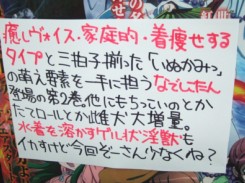 癒しヴォイス・家庭的・着痩せする
タイプと三拍子揃った「いぬかみっ」
の萌え要素を一手に担うなでしたん
登場の第2巻。他にもちっこいのとか
たてロールとか雌犬大増量。
水着を溶かすゲル状淫獣も
イカすけど今回ぞーさん少なくね?